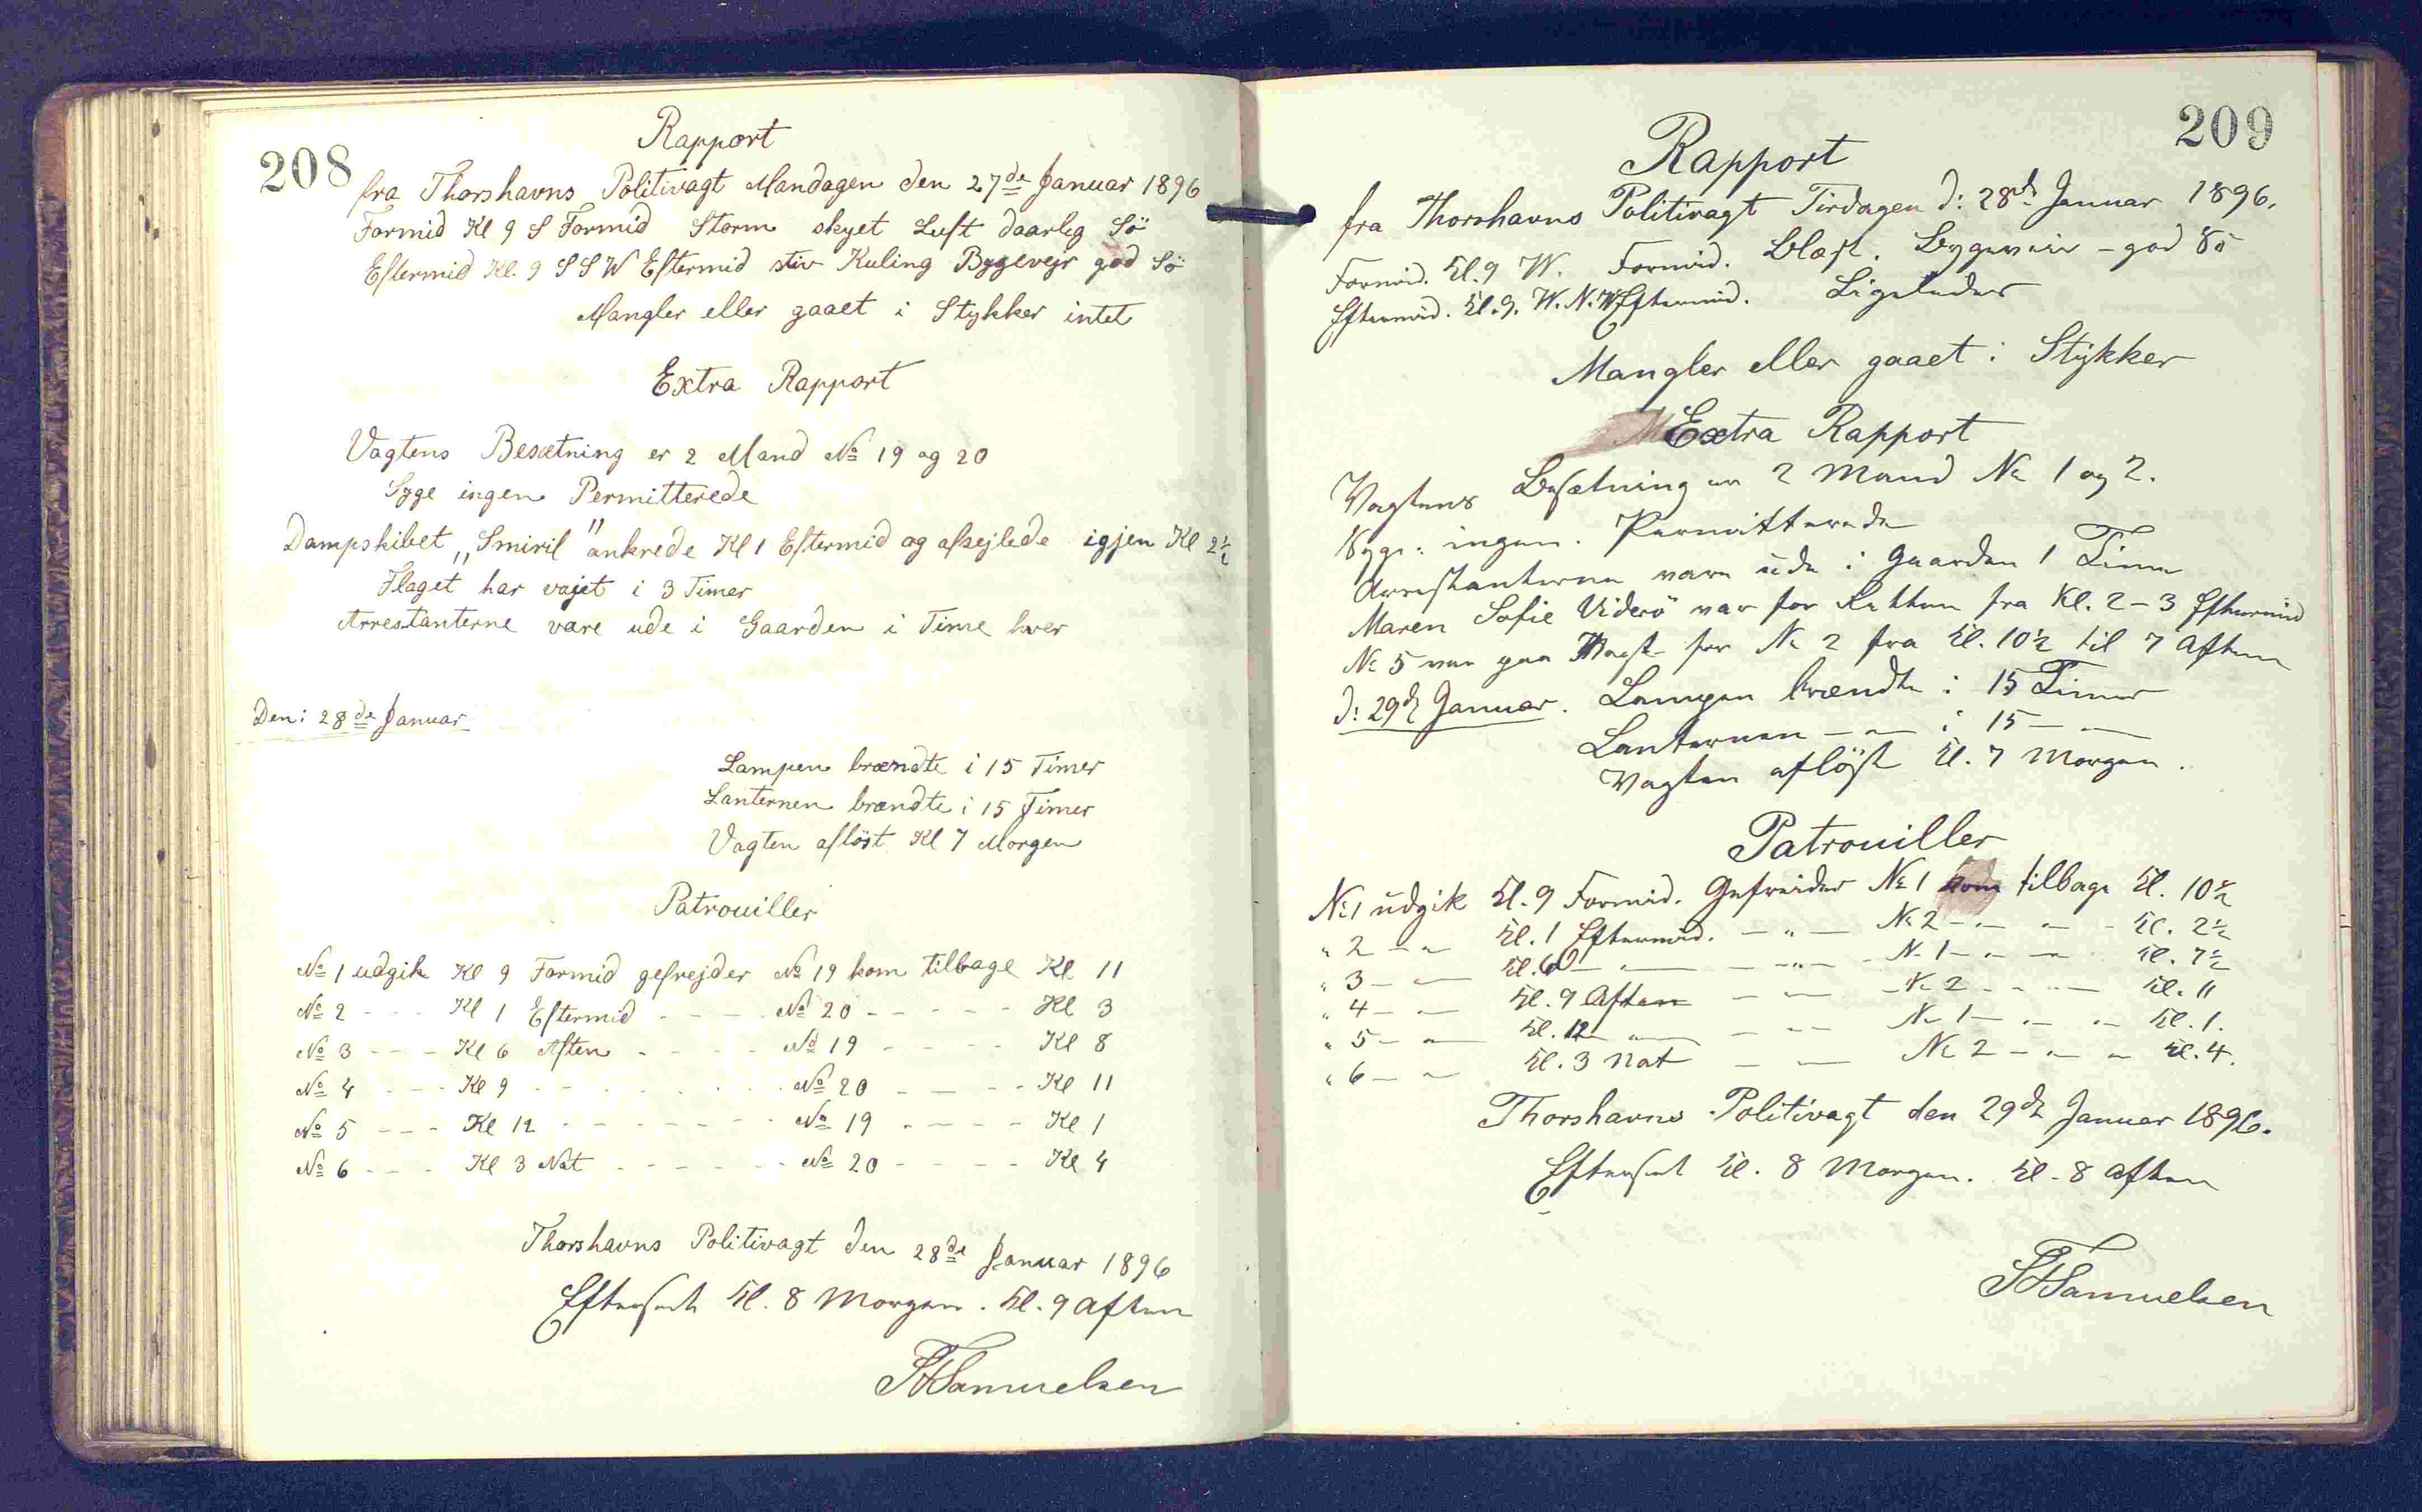 208
Rapport
fra Thorshavns Politivagt Mandagen den 27de Januar 1896
Formid Kl 9 S Formid Storm skyet Luft daarlig Sö
Eftermid Kl. 9 S S W Eftermid stiv Kuling Bygevejr god Sö
Mangler eller gaaet i Stykker intet
Extra Rapport
Vagtens Besætning er 2 Mand No 19 og 20
Syge ingen Permitterede
Dampskibet „Smiril" ankrede Kl 1 Eftermid og afsejlede igjen Kl 2½
Flaget har vajet i 3 Timer
Arrestanterne vare ude i Gaarden i Time hver
Den: 28de Januar
Lampen brændte i 15 Timer
Lanternen brændte i 15 Timer
Vagten aflöst Kl 7 Morgen
Patrouiller
No 1 udgik Kl 9 Formid gefrejder No 19 kom tilbage Kl 11
No 2 - - - Kl 1 Eftermid - - - - No 20 - - - - - Kl 3
No 3 - - - Kl 6 Aften - - - - No 19 - - - - Kl 8
No 4 - - - Kl 9 - - - - - - - No 20 - - - - Kl 11
No 5 - - - Kl 12 - - - - - - - No 19 - - - - Kl 1
No 6 - - - Kl 3 Nat - - - - - - No 20 - - - - Kl 4
Thorshavns Politivagt den 28de Januar 1896
Efterseet Kl. 8 Morgen. Kl. 9 Aften
Samuelsen
209
Rapport
fra Thorshavns Politivagt Tirdagen d: 28de Januar 1896.
Formid. Kl. 9 W. Formid. Blæst. Bygeveir - god Sö
Eftermid. Kl. 9. W.N.W Eftermid. Ligeledes
Mangler eller gaaet i Stykker
Extra Rapport
Vagtens Besætning er 2 Mand No 1 og 2.
Syge: ingen. Permitterede
Arrestanterne vare ude i Gaarden 1 Time
Maren Sofie Viderö var for Retten fra Kl. 2-3 Eftermid
No 5 var paa Vagt for No 2 fra Kl. 10½ til 7 Aften
d: 29de Januar. Lampen brændte i 15 Timer
Lanternen - " - i 15 - " -
Vagten aflöst Kl. 7 Morgen.
Patrouiller
No 1 udgik Kl. 9 Formid. Gefreider No 1 kom tilbage Kl. 10½
" 2 - " - Kl. 1 Eftermid. - " - No 2 - " - " - Kl. 2½
" 3 - " - Kl. 6 - " - - " - No 1 - " - " - Kl. 7½
" 4 - " - Kl. 9 Aften - " - No 2 - " - " - Kl. 11
" 5 - " - Kl. 12 - " - - " - No 1 - " - " - Kl. 1.
" 6 - " - Kl. 3 Nat - " - No 2 - " - " - Kl. 4.
Thorshavns Politivagt den 29de Januar 1896.
Efterseet Kl. 8 Morgen. Kl. 8 Aften
Samuelsen